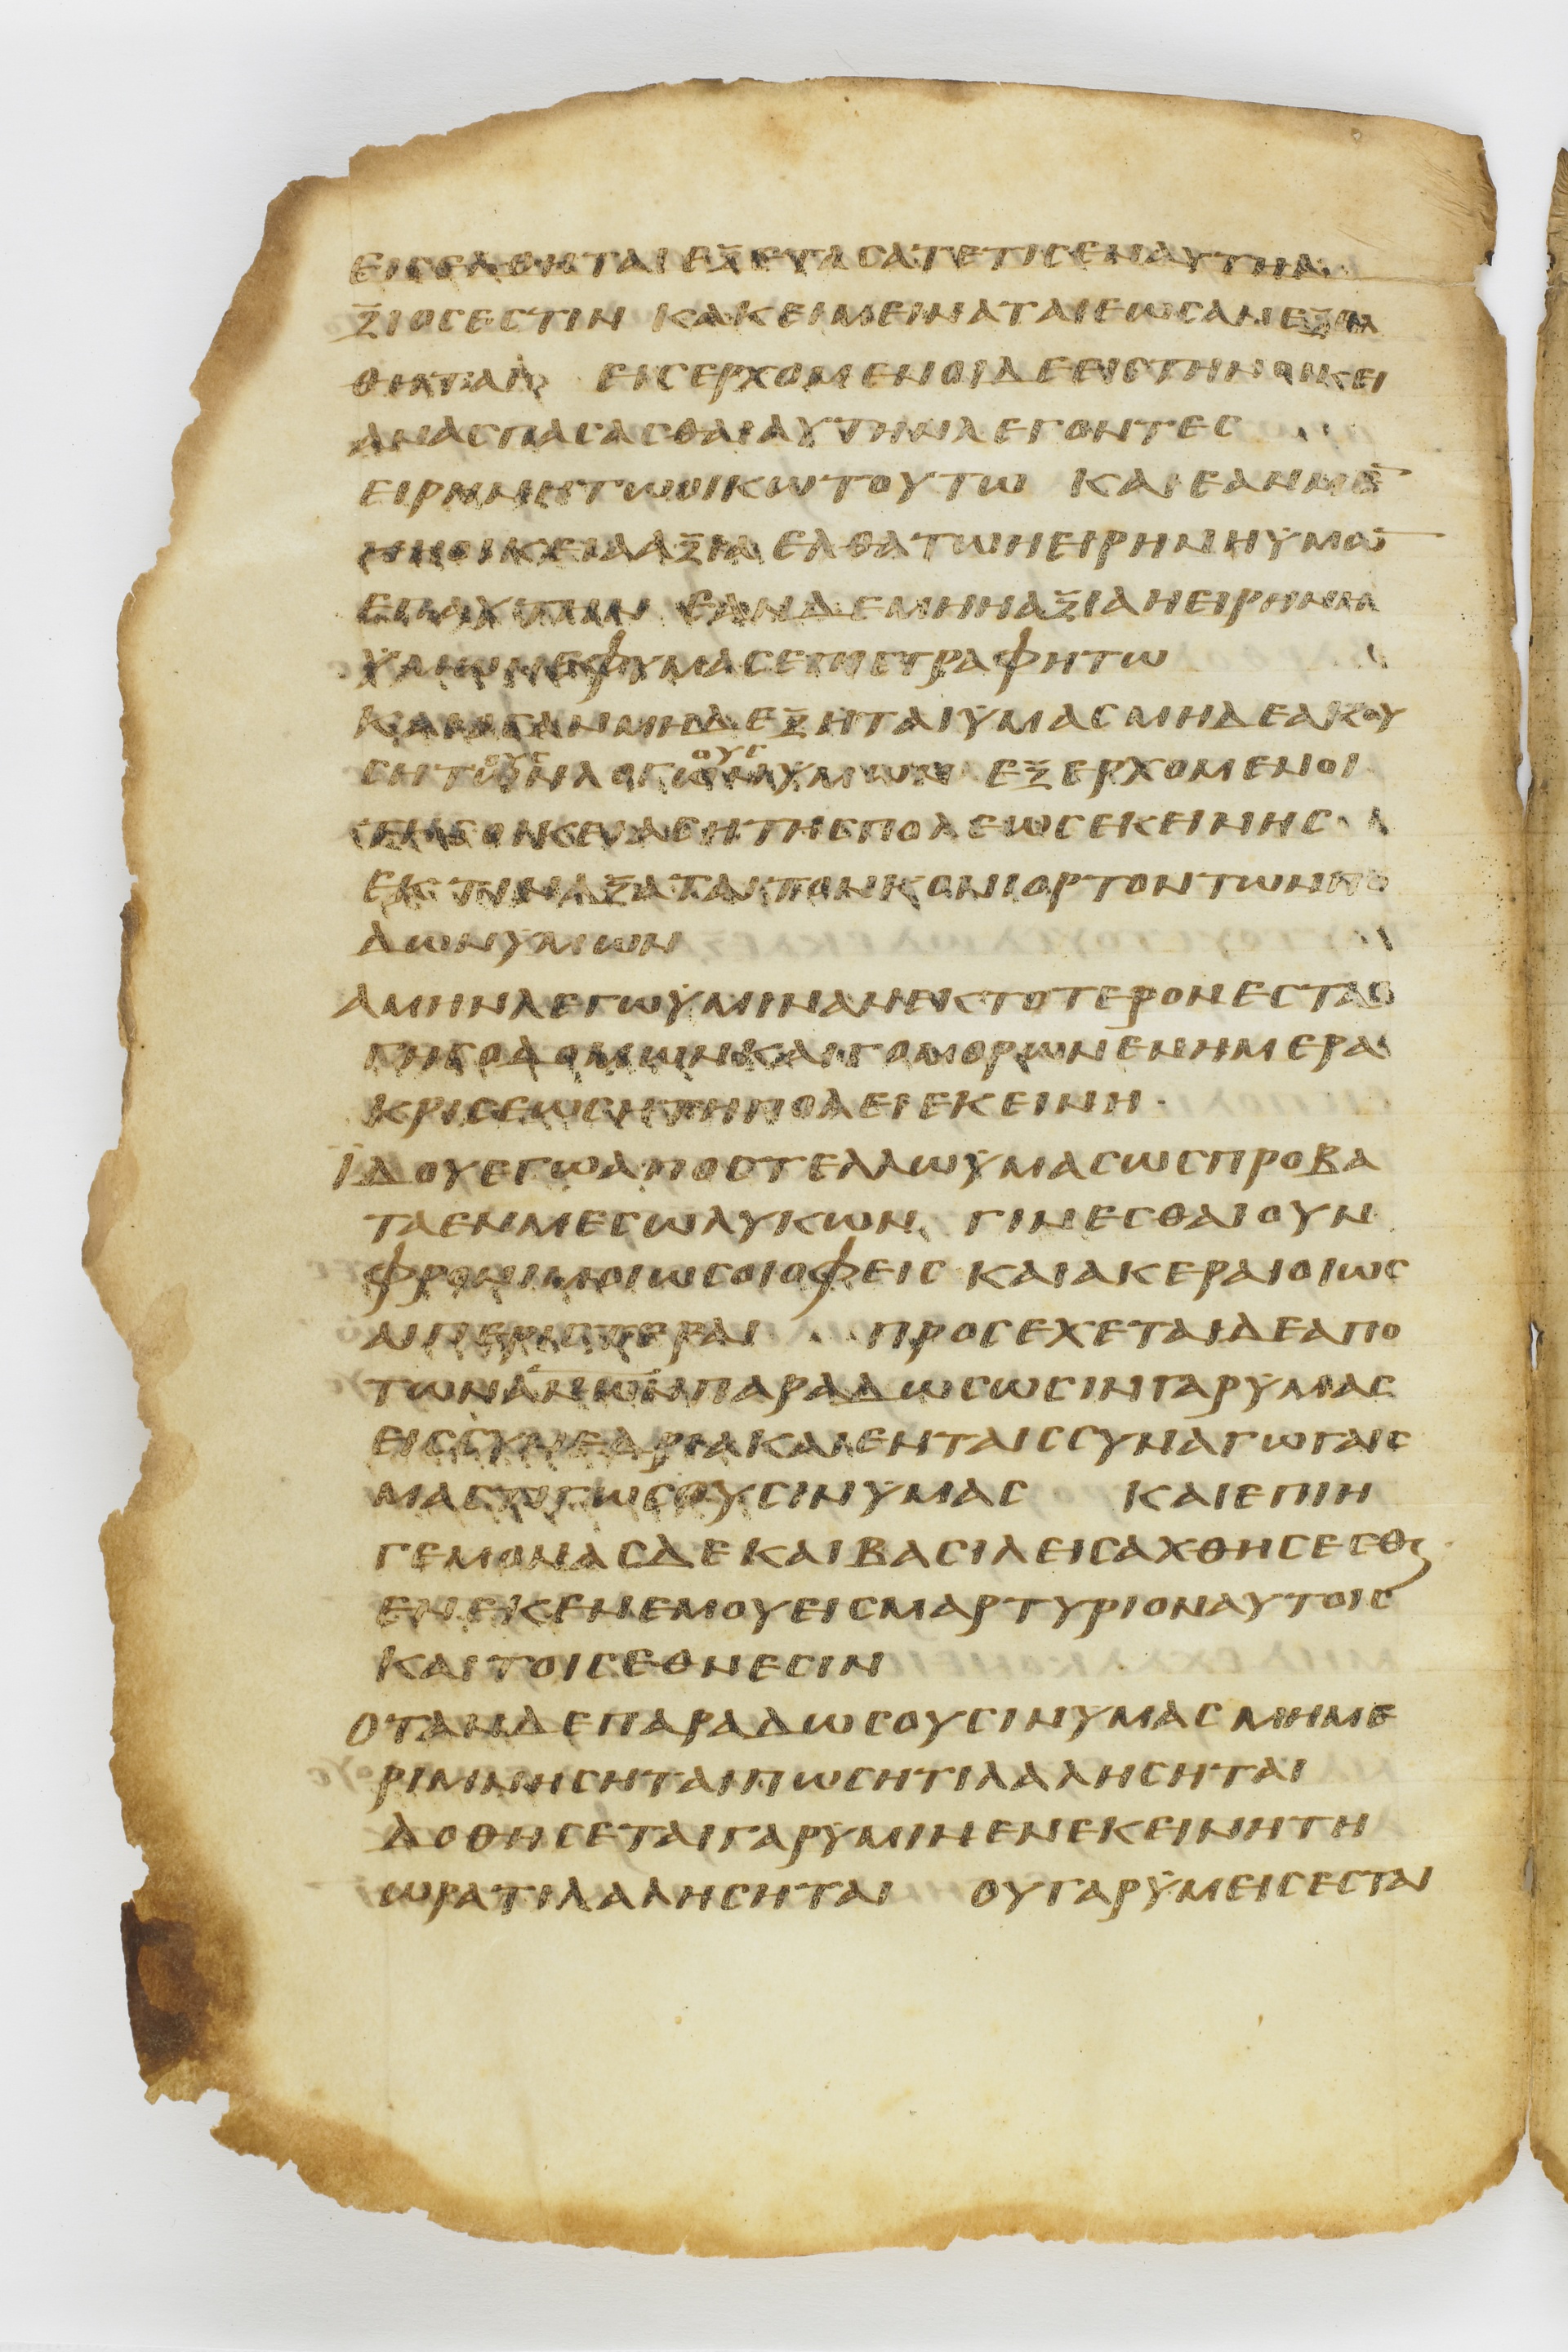 ειϲελθηται εξεταϲατε τιϲ εν αυτη α
ξιοϲ εϲτιν κακει μειναται εωϲ αν εξελ
θηται ειϲερχομενοι δε ειϲ την οικει
αν αϲπαϲαϲθαι αυτην λεγοντεϲ
ειρηνη τω οικω τουτω και εαν με̅
η η οικεια αξια ελθατω η ειρηνη ϋμω̅
επ αυτην εαν δε μη η αξια η ειρηνη
ϋμων εφ υμαϲ επιϲτραφητω
και οταν μη δεξηται ϋμαϲ μηδε ακου
ϲη των λογων ϋμων εξερχομενοι
τηϲ πολεωϲ εκεινηϲ
εκτιναξαται τον κονιορτον των πο
δων ϋμων
αμην λεγω ϋμιν ανεκτοτερον εϲται
γη ϲοδομων και γομορων εν ημερα
κριϲεωϲ η τη πολει εκεινη
ϊδου εγω αποϲτελλω ϋμαϲ ωϲ προβα
τα εν μεϲω λυκων γινεϲθαι ουν
φρονιμοι ωϲ οι οφειϲ και ακεραιοι ωϲ
αι περιϲτεραι προϲεχεται δε απο
των α̅ν̅ω̅ν̅ παραδωϲωϲιν γαρ ϋμαϲ
ειϲ ϲυνεδρια και εν ταιϲ ϲυναγωγαιϲ
μαϲτιγωϲουϲιν υμαϲ και επι η
γεμοναϲ δε και βαϲιλειϲ αχθηϲεϲθε
ενεκεν εμου ειϲ μαρτυριον αυτοιϲ
και τοιϲ εθνεϲιν
οταν δε παραδωϲουϲιν υμαϲ μη με
ριμνηϲηται πωϲ η τι λαληϲηται
δοθηϲεται γαρ ϋμιν εν εκεινη τη
ωρα τι λαληϲηται ου γαρ ϋμειϲ εϲται